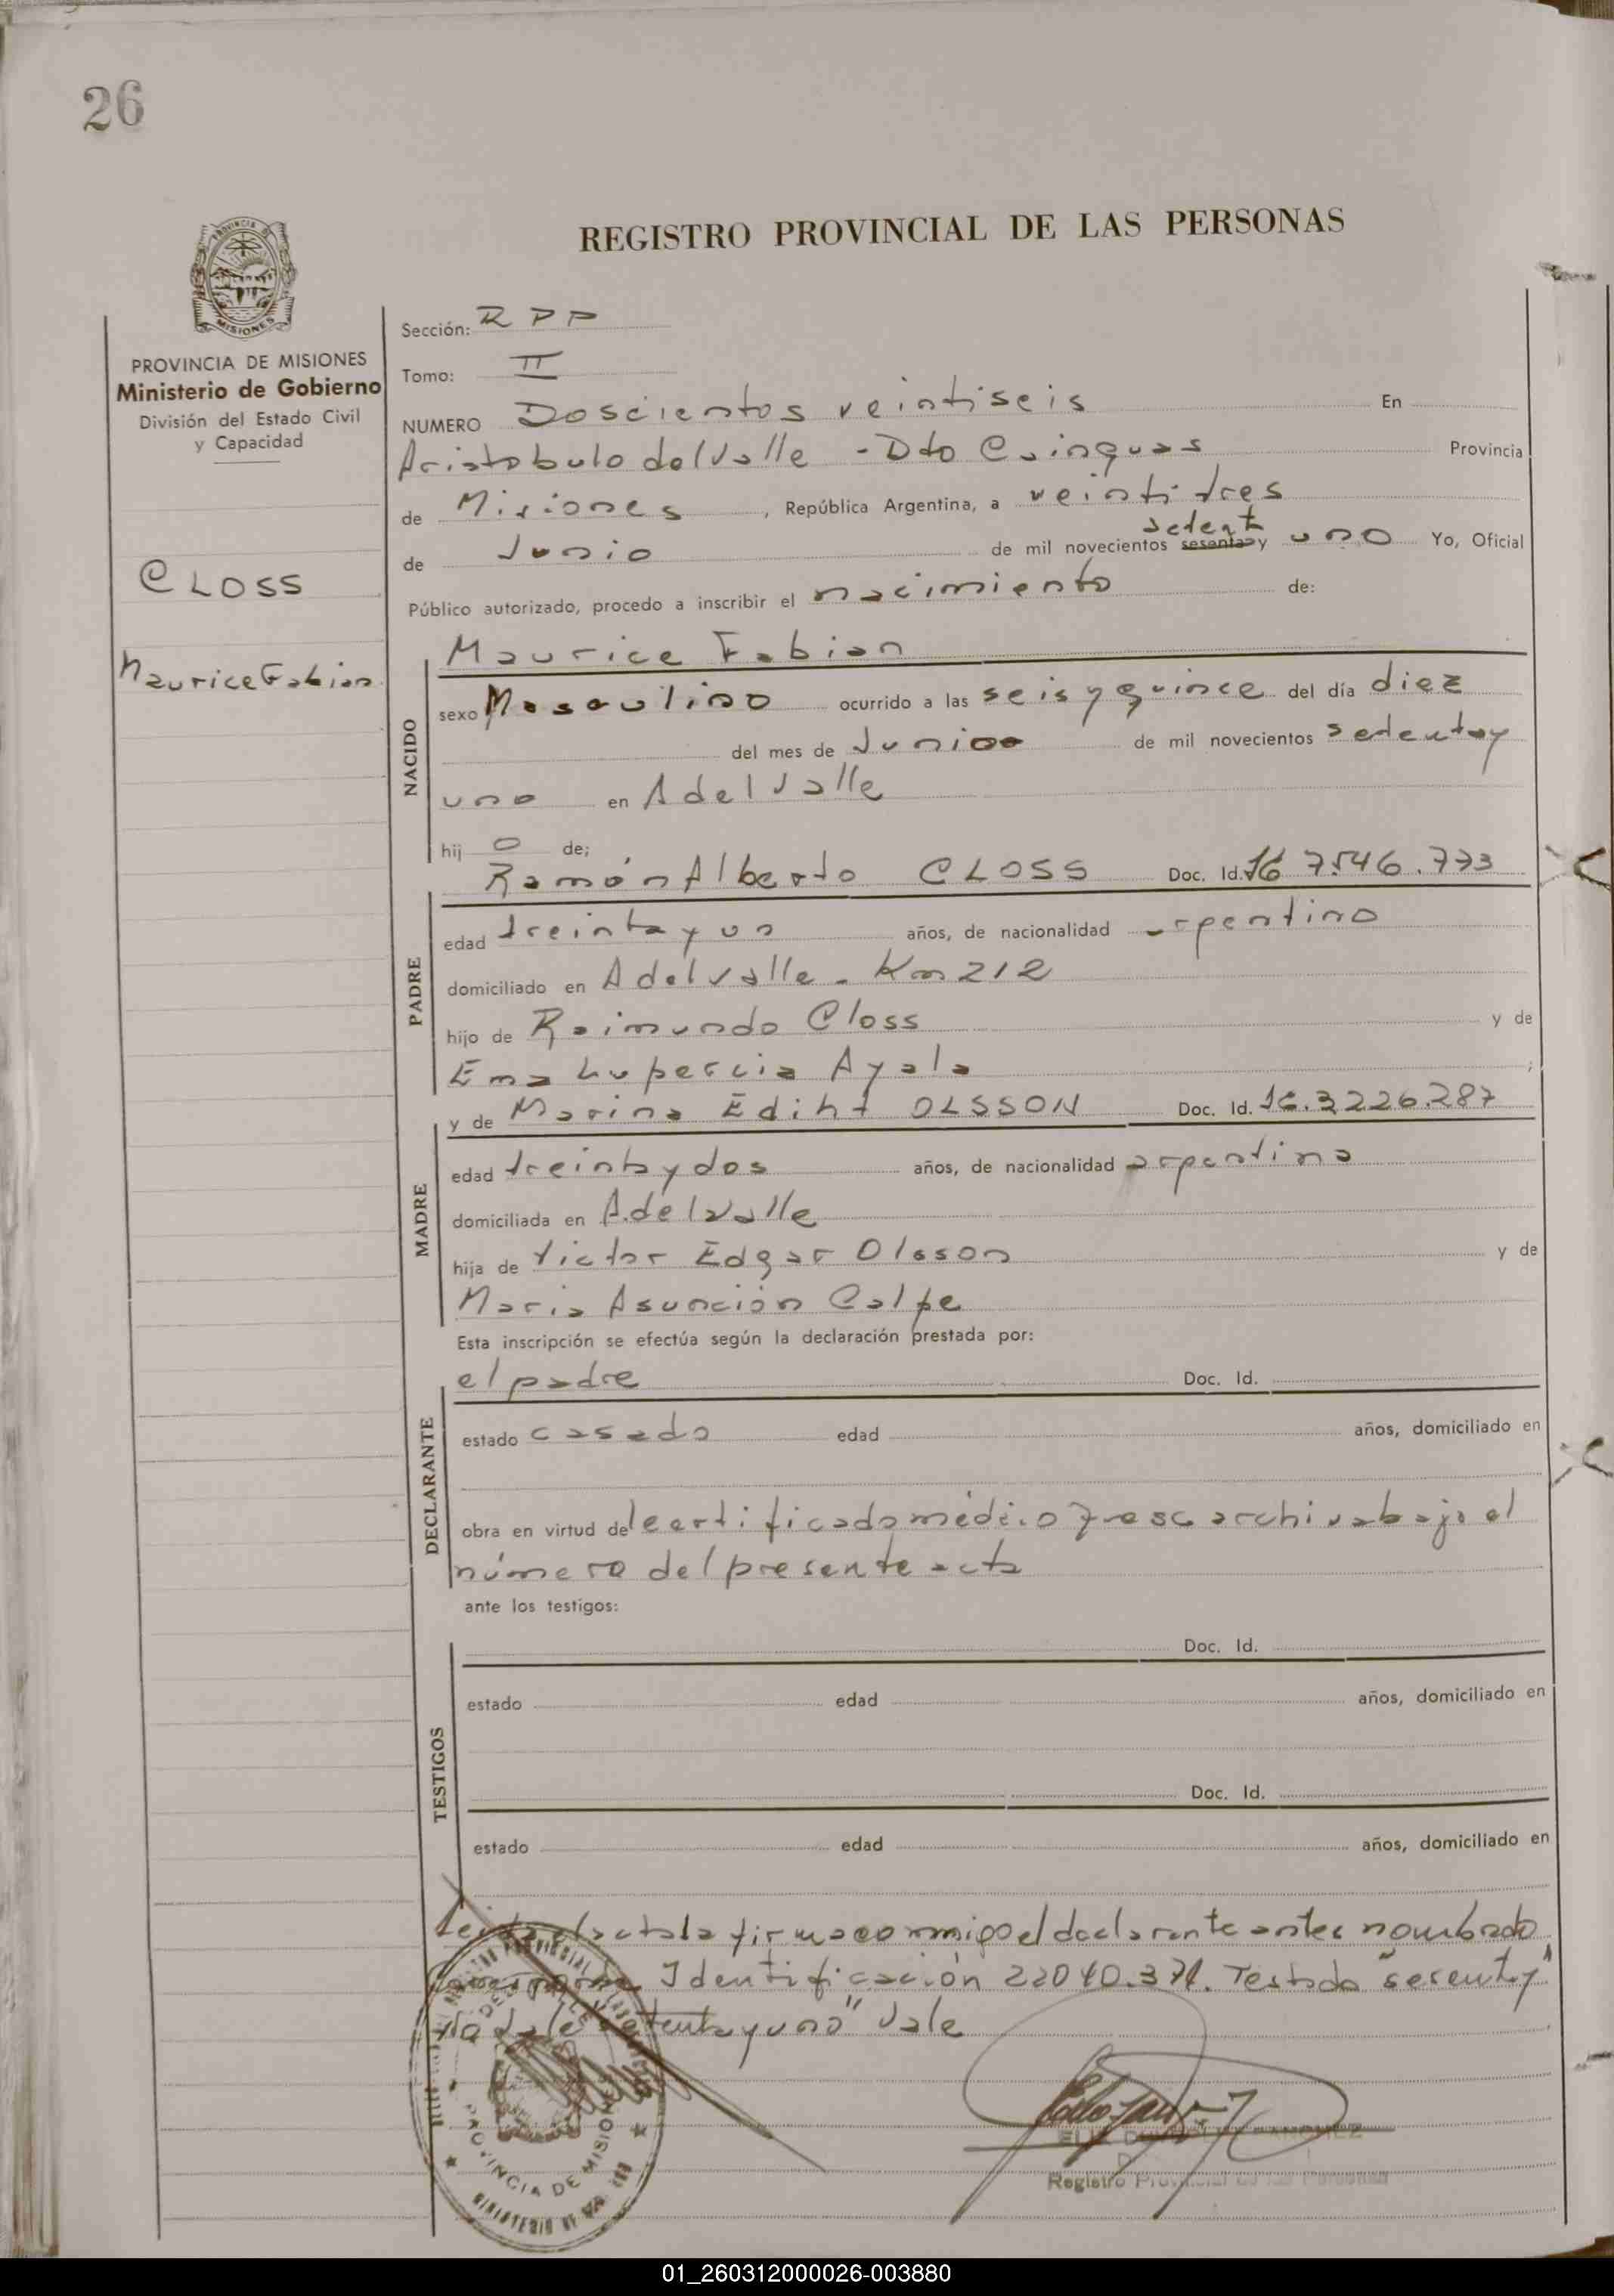 26
REGISTRO PROVINCIAL DE LAS PERSONAS
MISIONES
PROVINCIA DE MISIONES
Ministerio de Gobierno
División del Estado Civil
y Capacidad
CLOSS
Maurice Fabian
Sección: RPP
Tomo: II
NUMERO Doscientos veintiseis En
Aristobulo del Valle - Dto Cainguas Provincia
de Misiones, República Argentina, a veintitres
setent
de Junio de mil novecientos sesenta y uno Yo, Oficial
Público autorizado, procedo a inscribir el nacimiento de:
NACIDO
Maurice Fabian
sexo Masculino ocurrido a las seis y quince del día diez
del mes de Junio de mil novecientos setenta y
uno en A del Valle
hij o de;
PADRE
Ramón Alberto CLOSS Doc. Id. 7.546.773
edad treinta y un años, de nacionalidad argentino
domiciliado en A del Valle - Km 212
hijo de Raimundo Closs y de
Ema Lupercia Ayala ;
MADRE
y de Marina Ediht OLSSON Doc. Id. 3226.287
edad treinta y dos años, de nacionalidad argentina
domiciliada en A. del Valle
hija de Victor Edgar Olsson y de
Maria Asunción Calpe
Esta inscripción se efectúa según la declaración prestada por:
DECLARANTE
el padre Doc. Id.
estado casado edad años, domiciliado en
obra en virtud del certificado médico que se archiva bajo el
número del presente acta
ante los testigos:
TESTIGOS
Doc. Id.
estado edad años, domiciliado en
Doc. Id.
estado edad años, domiciliado en
Leida el acta la firma conmigo el declarante antes nombrado
Identificación Testado "sesenta y"
"setenta y uno" Vale
PROVINCIA DE MISIONES
MINISTERIO DE
Registro Provincial de las Personas
01_260312000026-003880